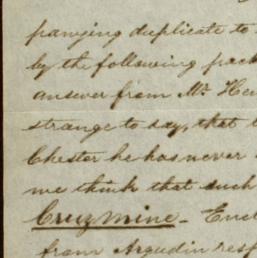 panying duplicate to
by the following pack
answer from Mr. Hen
strange to say, that
Chester he has never
we think that such
Cruzmine - Encl
from Argudin resp